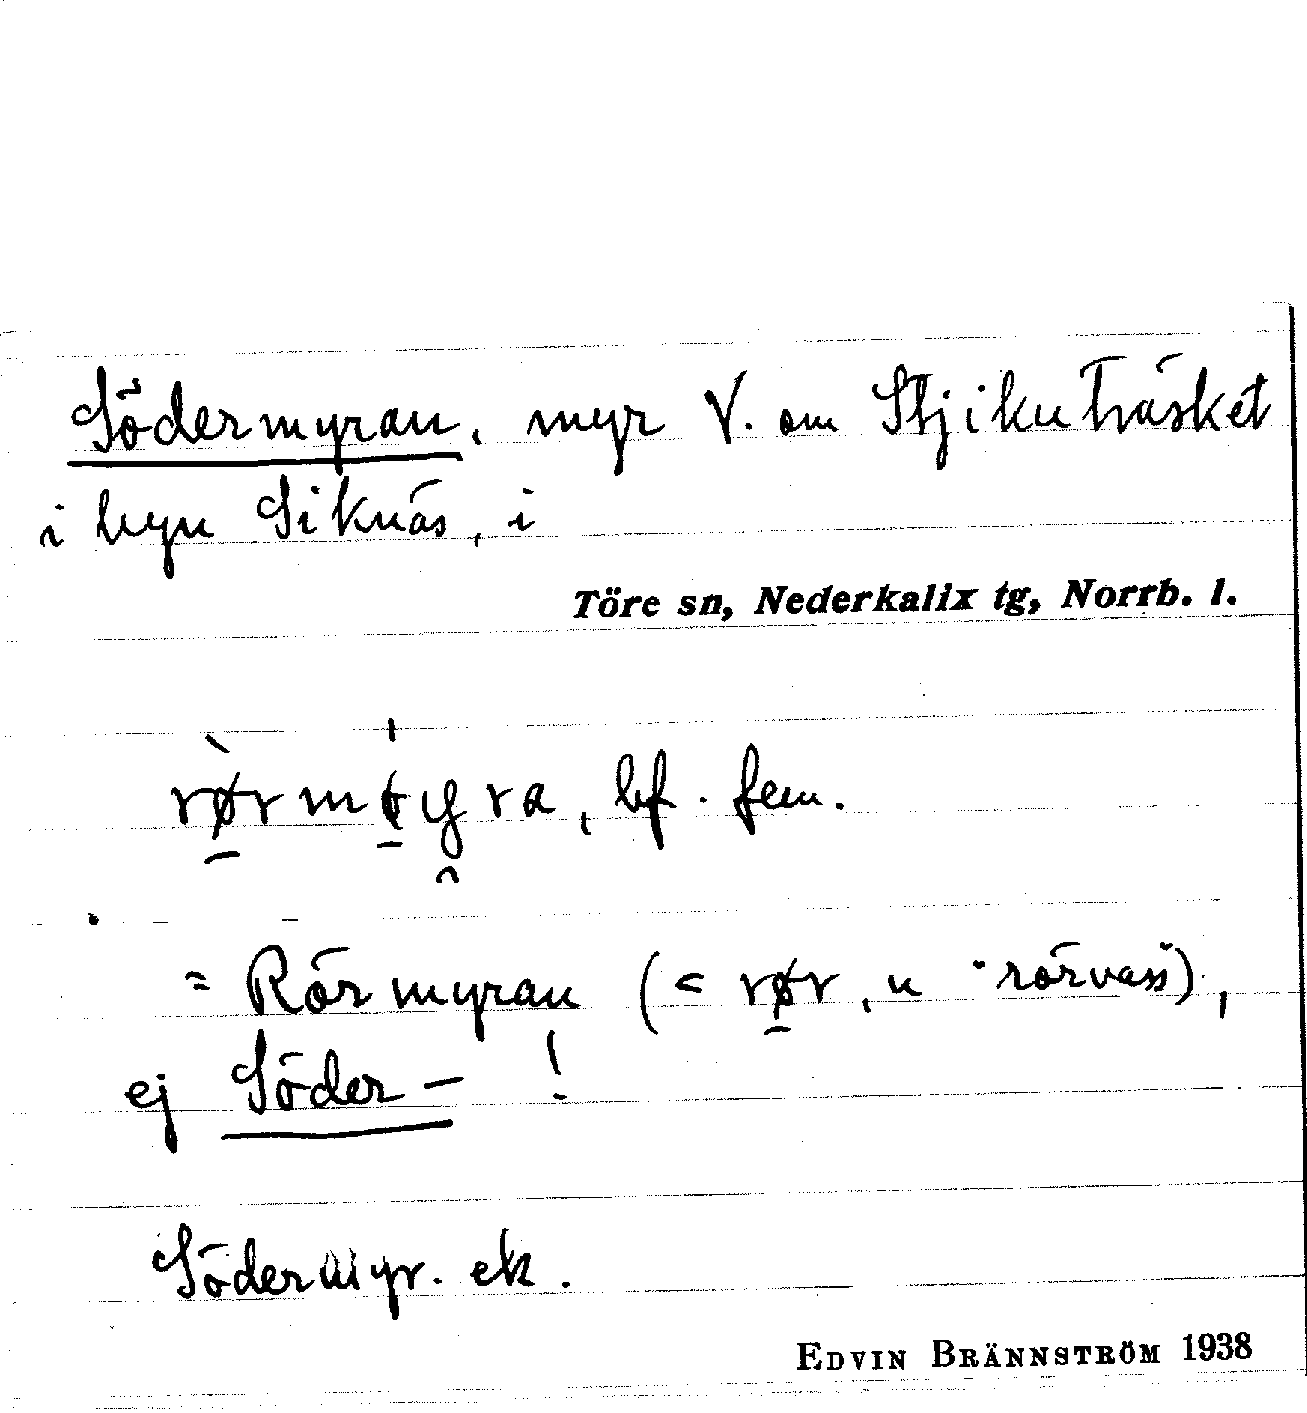 Södermyran, myr V. om Stjikuträsket
i byn Siknäs, i
Töre sn, Nederkalix tg, Norrb. l.
bf. fem.
= Rörmyran (< rø̠r, n "rörvass"),
ej Söder- !
Södermyr. ek.
EDVIN BRÄNNSTRÖM 1938